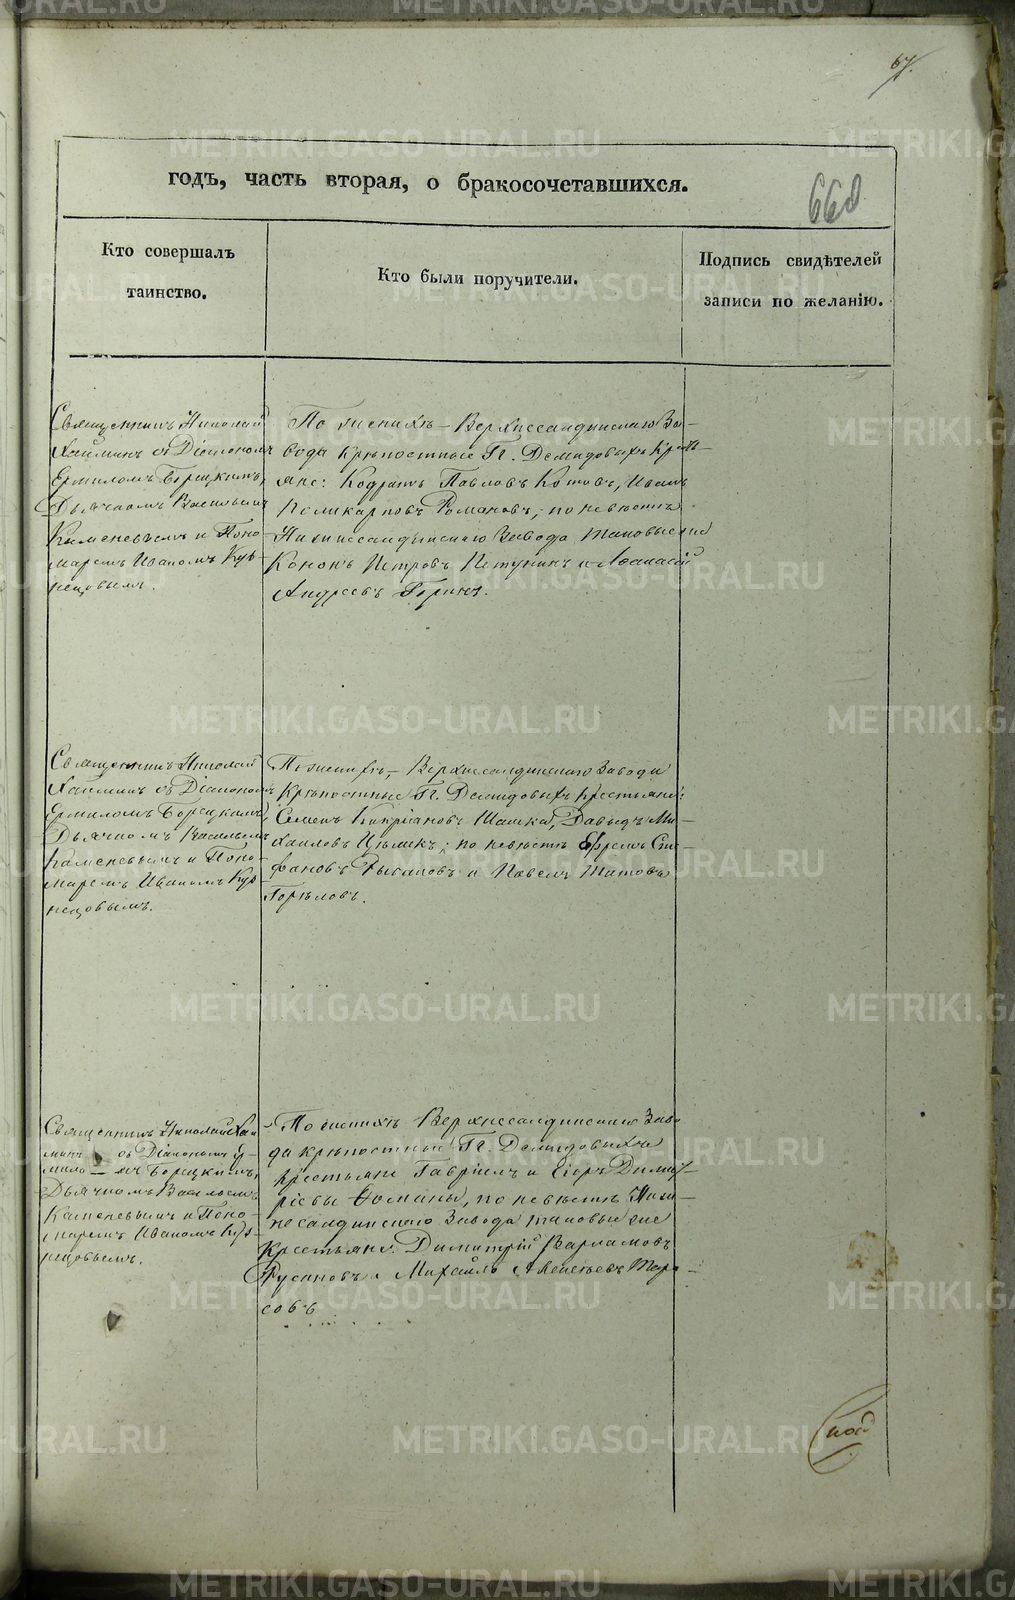 67.
годъ, часть вторая, о бракосочетавшихся.
668
Кто совершалъ
таинство.
Кто были поручители.
Подпись свидѣтелей
записи по желанію.
Священникъ Николай
съ Діакономъ
Ермиломъ Борецкимъ,
Дьячкомъ Василіемъ
Каменевымъ и Поно-
маремъ Иваномъ Куз-
нецовымъ.
По женихѣ – Верхнесалдинскаго За-
вода крѣпостные Гг. Демидовыхъ Кресть-
яне: Кодратъ Павловъ Котовъ, Иванъ
Поликарповъ Романовъ; по невѣстѣ
Нижнесалдинскаго Завода таковые же
Кононъ Петровъ и Афанасій
Андреевъ
Священникъ Николай
съ Діакономъ
Ермиломъ Борецкимъ,
Дьячкомъ Василіемъ
Каменевымъ и Поно-
маремъ Иваномъ Куз-
нецовымъ.
По женихѣ, – Верхнесалдинскаго Завода
Крѣпостные Гг. Демидовыхъ Крестьяне:
Семенъ Кипріановъ Давыдъ Ми-
хаиловъ по невѣстѣ Ефремъ
и Павелъ Титовъ
Горѣловъ.
Священникъ Николай
съ Діакономъ Ер-
мило – мъ Борецкимъ,
Дьячкомъ Василіемъ
Каменевымъ и Поно-
маремъ Иваномъ Куз-
нецовымъ.
По женихѣ Верхнесалдинскаго Заво-
да крѣпостные Гг. Демидовыхъ
Крестьяне Гавріилъ и Егоръ Димит-
ріевы по невѣстѣ Ниж-
несалдинскаго Завода таковые же
Крестьяне: Димитрій Варламовъ
Русаковъ и Михаилъ Тара-
совъ
METRIKI.GASO-URAL.RU